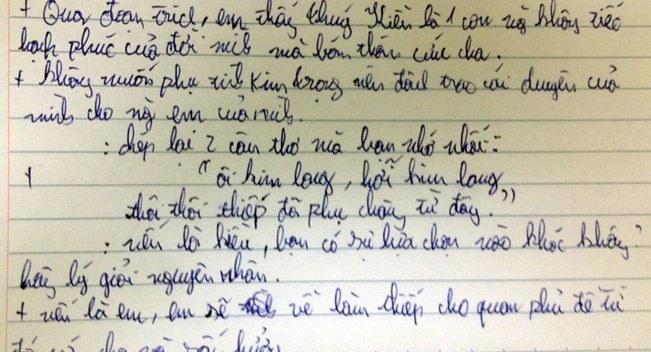 + Qua đoạn trích, em thấy Thuý Kiều là 1 con ng không tiếc
hạnh phúc của đời mình mà bán thân cứu cha.
+ không muốn phụ tình Kim trọng nên đành trao cái duyên của
mình cho ng em của mình.
: chép lại 2 câu thơ mà bạn nhớ nhất:
+ "ôi kim lang, hỡi kim lang
thôi thôi thiếp đã phụ chàng từ đây."
: nếu là kiều, bạn có sự lựa chọn nào khác không?
hãy lý giải nguyên nhân.
+ nếu là em, em sẽ về làm thiếp cho quan phủ để từ
đó